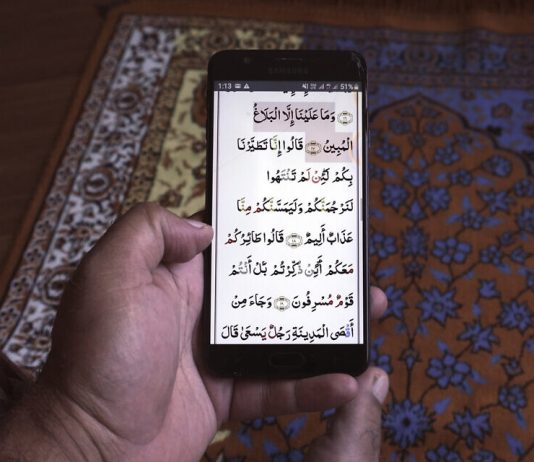 SAMSUNG
1:13 51%
وَمَا عَلَيْنَا إِلَّا الْبَلَاغُ
الْمُبِينُ ۝ قَالُوا إِنَّا تَطَيَّرْنَا
بِكُمْ لَئِنْ لَمْ تَنْتَهُوا
لَنَرْجُمَنَّكُمْ وَلَيَمَسَّنَّكُمْ مِنَّا
عَذَابٌ أَلِيمٌ ۝ قَالُوا طَائِرُكُمْ
مَعَكُمْ أَئِنْ ذُكِّرْتُمْ بَلْ أَنْتُمْ
قَوْمٌ مُسْرِفُونَ ۝ وَجَاءَ مِنْ
أَقْصَى الْمَدِينَةِ رَجُلٌ يَسْعَىٰ قَالَ